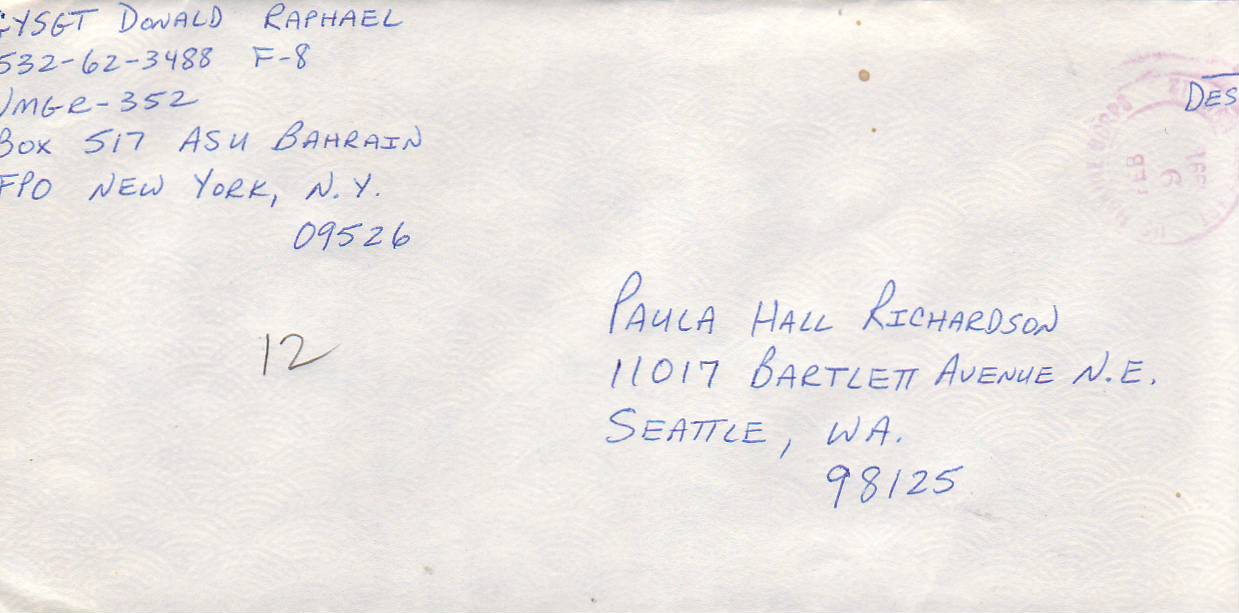 GYSGT DONALD RAPHAEL
532-62-3488 F-8
VMGR-352
BOX 517 ASU BAHRAIN
FPO NEW YORK, N.Y.
09526
DES
FEB
6
12
PAULA HALL RICHARDSON
11017 BARTLETT AVENUE N.E.
SEATTLE, WA.
98125